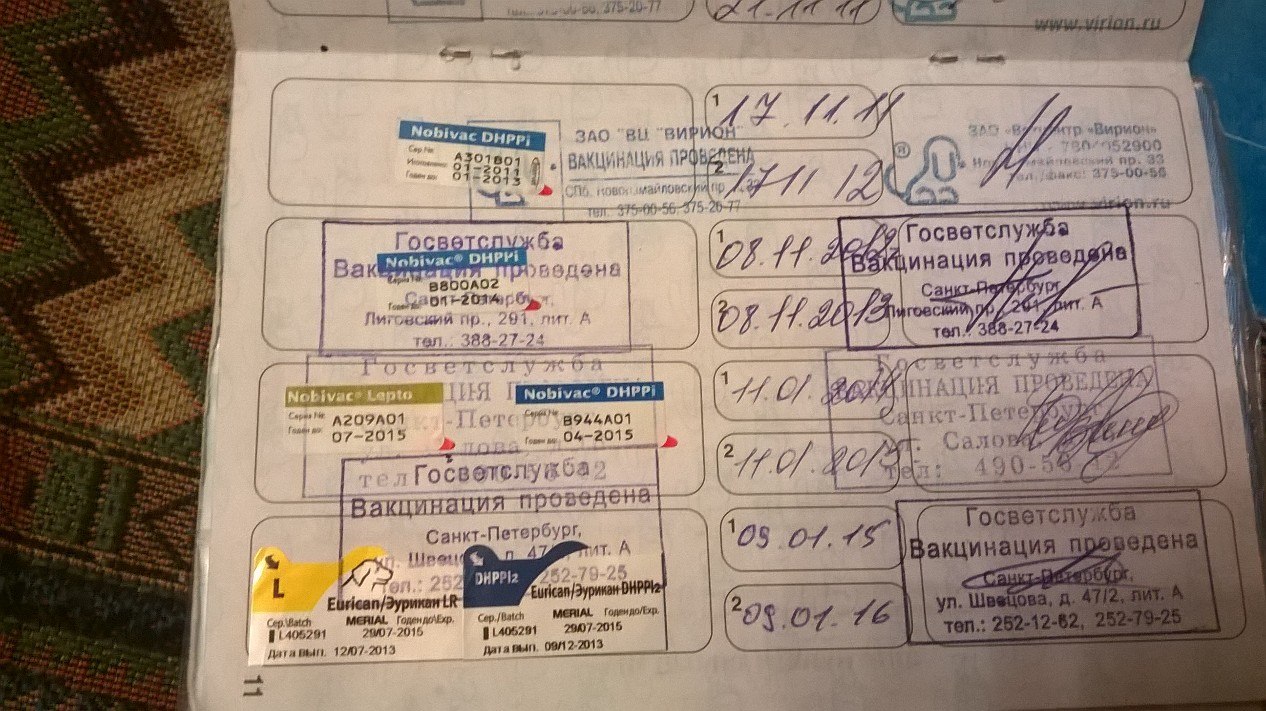 375-20-77
21.11.11
www.virion.ru
Nobivac DHPPi
A301B01
01-2011
01-2013
ЗАО "ВЦ "ВИРИОН"
ВАКЦИНАЦИЯ ПРОВЕДЕНА
СПб, Новоизмайловский пр., 33
тел. 375-00-56, 375-20-77
1
17.11.11
2
17 11 12
ЗАО «Ветцентр «Вирион»
пр. 33
тел./факс: 375-00-56
www.virion.ru
Госветслужба
Вакцинация проведена
Nobivac® DHPPi
B800A02
Годен до: 01-2014
Санкт-Петербург,
Лиговский пр., 291, лит. А
тел.: 388-27-24
1
08.11.2012
2
08.11.2013
Госветслужба
Вакцинация проведена
Санкт-Петербург,
Лиговский пр., 291, лит. А
тел.: 388-27-24
Госветслужба
Nobivac® Lepto
Серия №: A209A01
Годен до: 07-2015
Nobivac® DHPPi
Серия №: B944A01
Годен до: 04-2015
1
11.01.
2
11.01.2015
Госветслужба
ВАКЦИНАЦИЯ ПРОВЕДЕНА
Санкт-Петербург
ул. Салова
тел: 490-50
Госветслужба
Вакцинация проведена
Санкт-Петербург,
ул. Швецова, д. 47/2, лит. А
тел.: 252 252-79-25
L
Eurican/Эурикан LR
Сер.\Batch MERIAL Годен до\Exp.
L405291 29/07-2015
Дата вып. 12/07-2013
DHPPI2
Eurican/Эурикан DHPPI2
Сер./Batch MERIAL Годен до/Exp.
L405291 29/07-2015
Дата вып. 09/12-2013
1
09.01.15
2
09.01.16
Госветслужба
Вакцинация проведена
Санкт-Петербург,
ул. Швецова, д. 47/2, лит. А
тел.: 252-12-62, 252-79-25
11